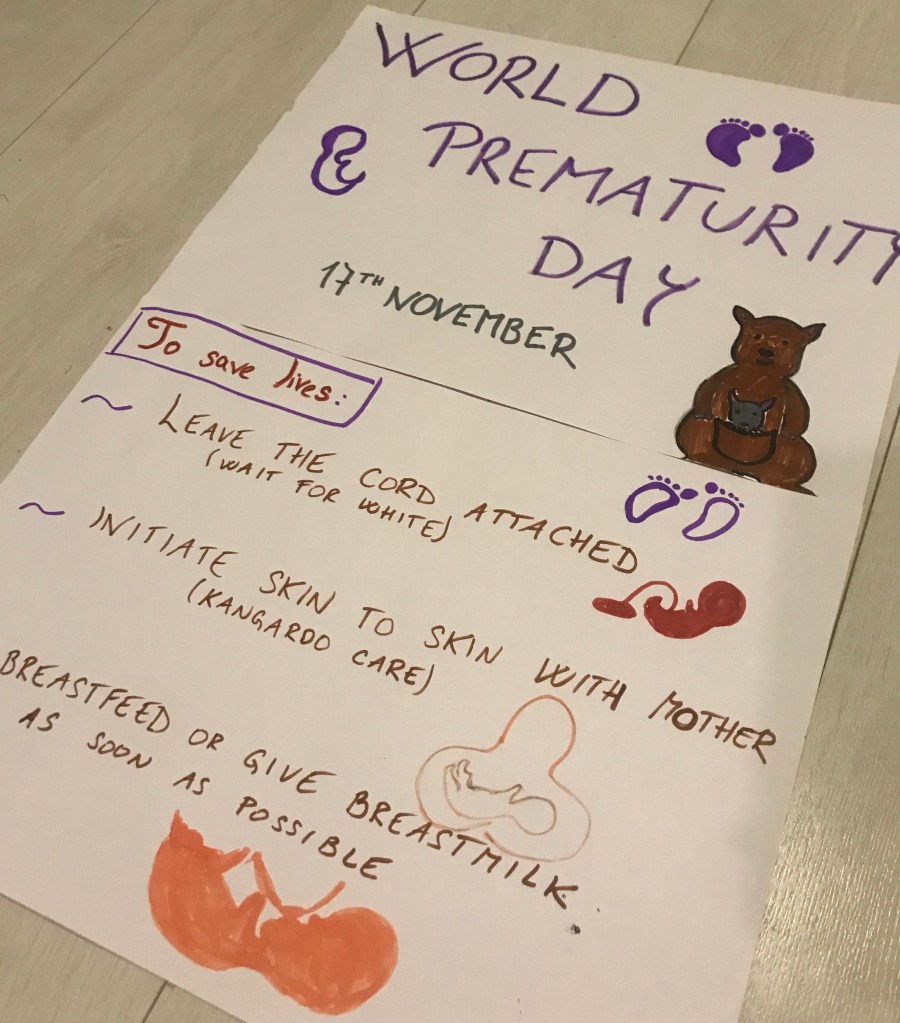 WORLD
PREMATURITY
DAY
17TH NOVEMBER
To save lives:
~ LEAVE THE CORD ATTACHED
(WAIT FOR WHITE)
~ INITIATE SKIN TO SKIN WITH MOTHER
(KANGAROO CARE)
BREASTFEED OR GIVE BREASTMILK
AS SOON AS POSSIBLE